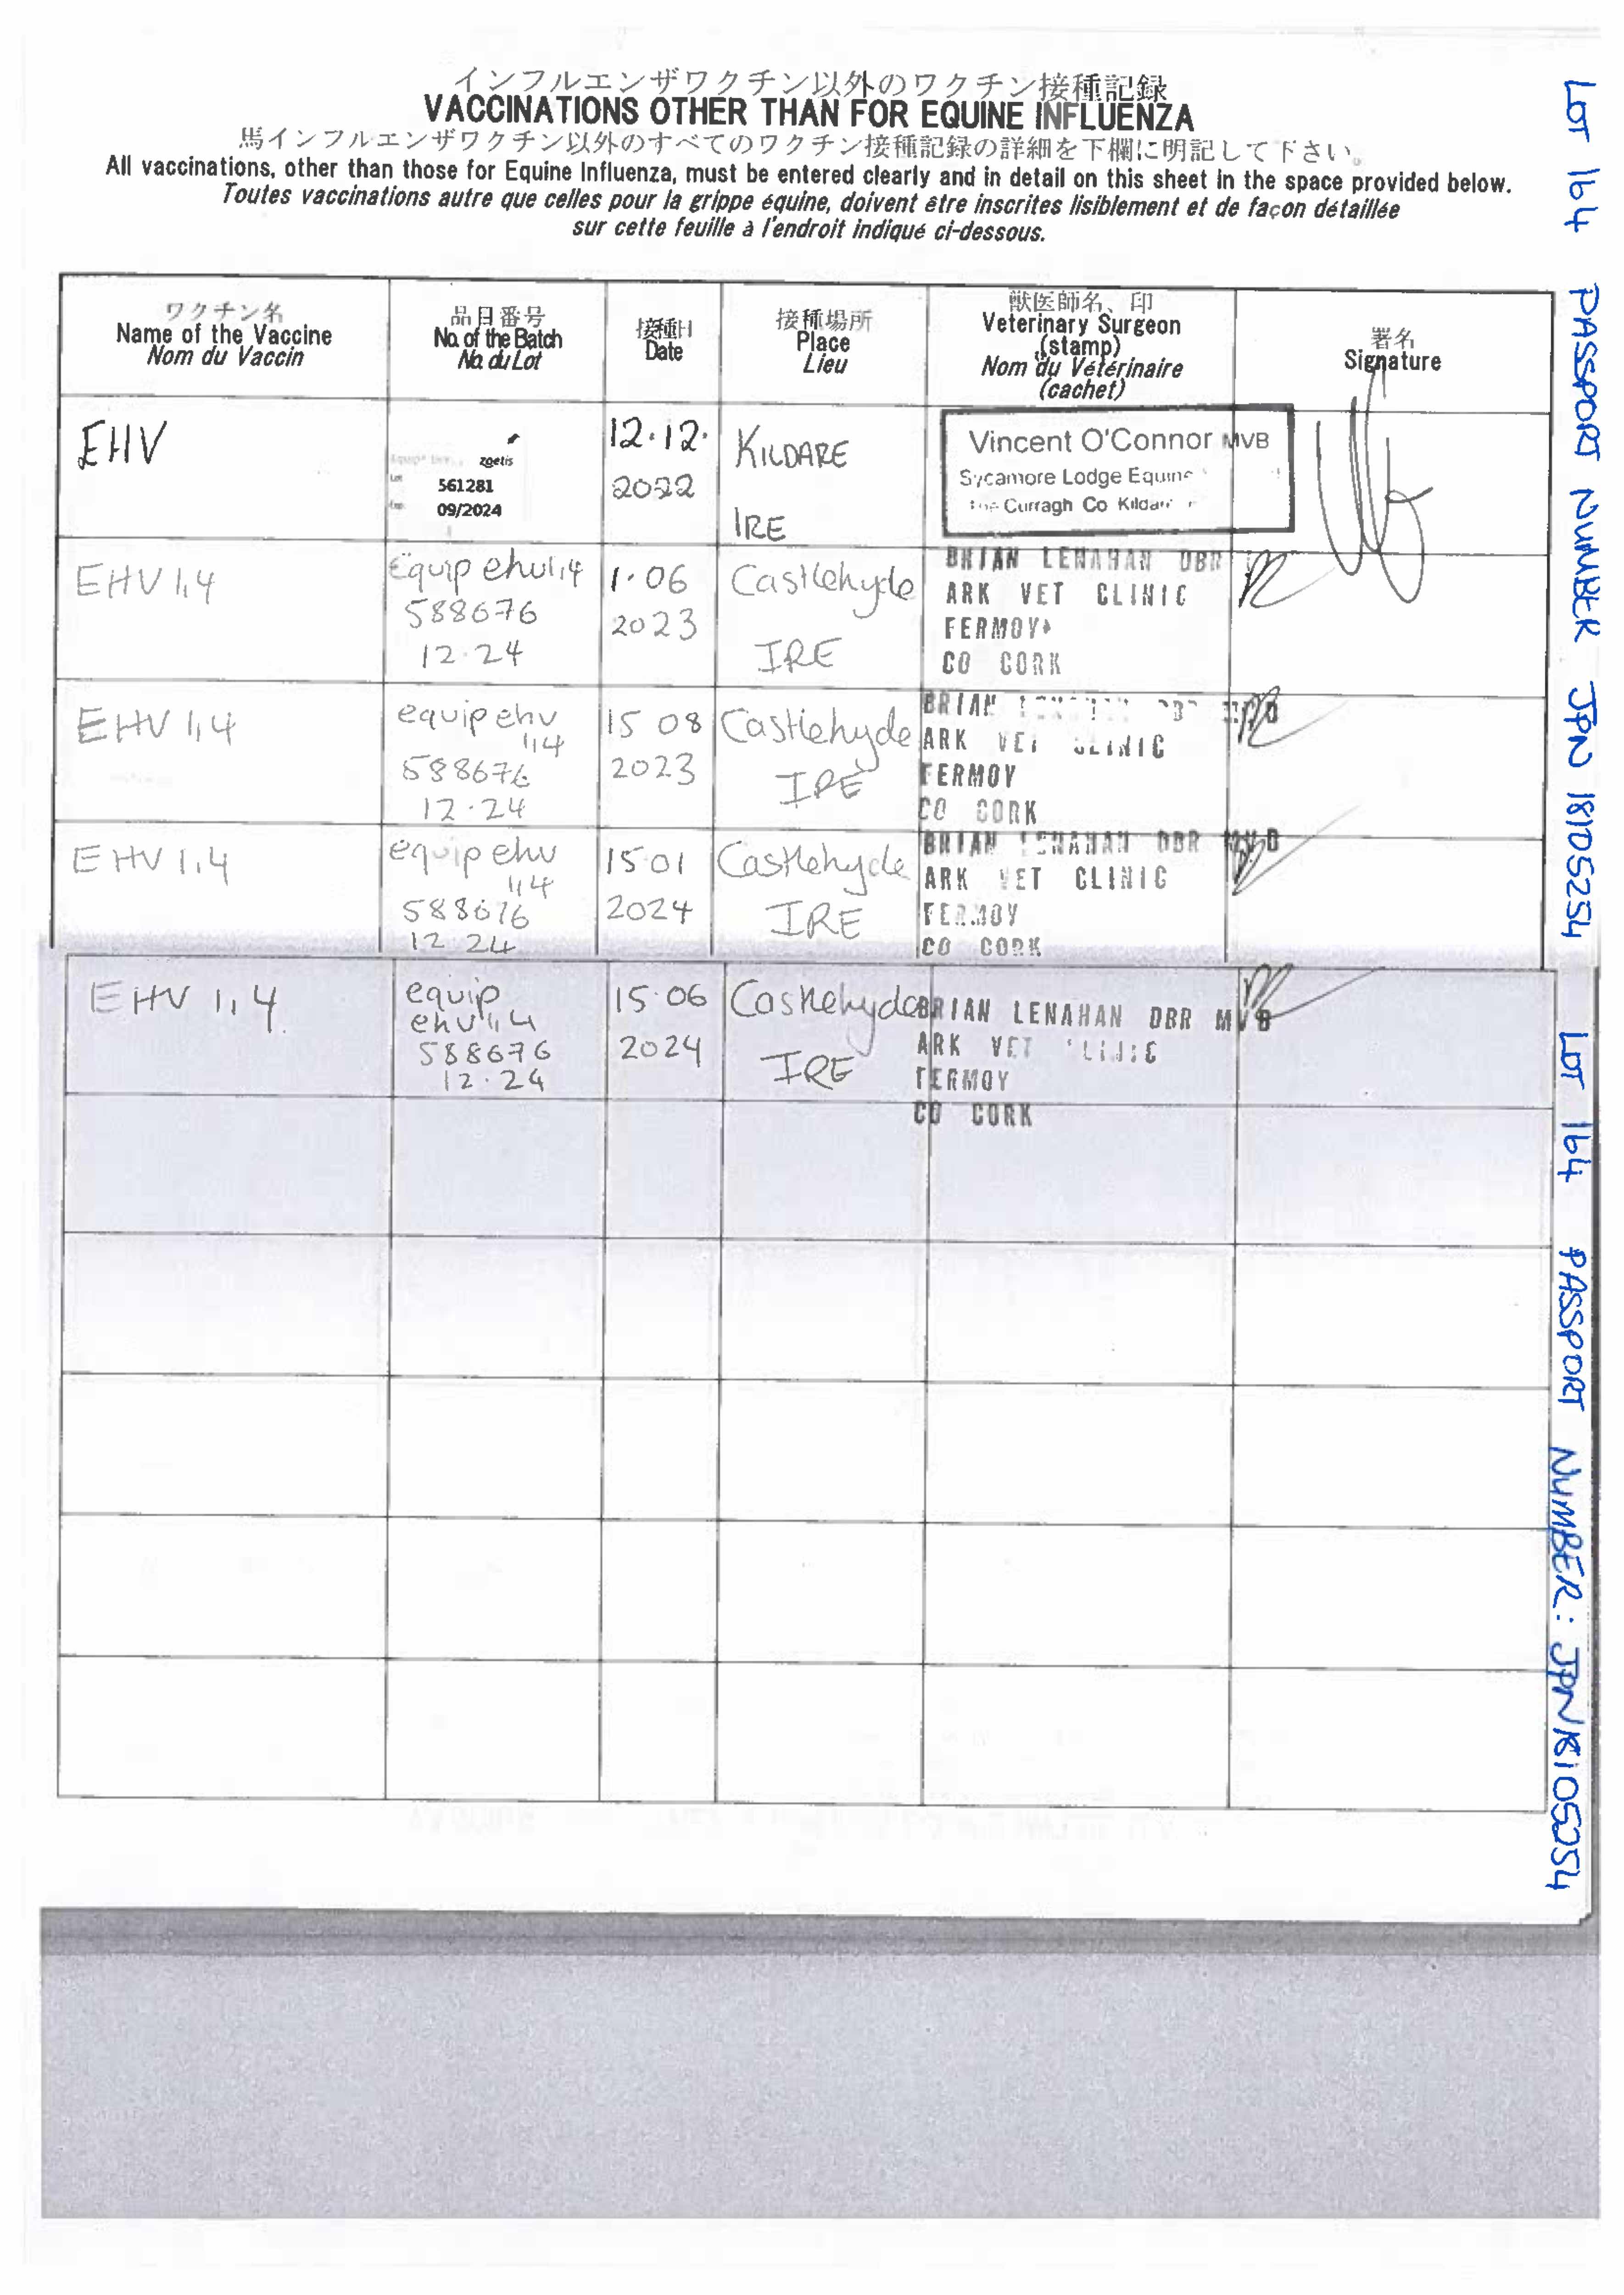 インフルエンザワクチン以外のワクチン接種記録
VACCINATIONS OTHER THAN FOR EQUINE INFLUENZA
馬インフルエンザワクチン以外のすべてのワクチン接種記録の詳細を下欄に明記して下さい。
All vaccinations, other than those for Equine Influenza, must be entered clearly and in detail on this sheet in the space provided below.
Toutes vaccinations autre que celles pour la grippe équine, doivent être inscrites lisiblement et de façon détaillée
sur cette feuille à l'endroit indiqué ci-dessous.
ワクチン名
Name of the Vaccine
Nom du Vaccin
品目番号
No. of the Batch
No. du Lot
接種日
Date
接種場所
Place
Lieu
獣医師名、印
Veterinary Surgeon
(stamp)
Nom du Vétérinaire
(cachet)
署名
Signature
EHV
zoetis
Lot 561281
Exp. 09/2024
12.12.
2022
KILDARE
IRE
Vincent O'Connor MVB
Sycamore Lodge Equine
The Curragh Co Kildare
EHV 1,4
Equip ehv1,4
588676
12.24
1.06
2023
Castlehyde
IRE
BRIAN LENAHAN DBR
ARK VET CLINIC
FERMOY
CO CORK
EHV 1,4
equip ehv
1,4
588676
12.24
15 08
2023
Castlehyde
IRE
BRIAN LENAHAN DBR
ARK VET CLINIC
FERMOY
CO CORK
EHV 1,4
equip ehv
1,4
588676
12 24
15.01
2024
Castlehyde
IRE
BRIAN LENAHAN DBR
ARK VET CLINIC
FERMOY
CO CORK
EHV 1,4
equip
ehv1,4
588676
12.24
15.06
2024
Castlehyde
IRE
BRIAN LENAHAN DBR MVB
ARK VET CLINIC
FERMOY
CO CORK
LOT 164 PASSPORT NUMBER JPN 18105254
LOT 164 PASSPORT NUMBER: JPN18105254